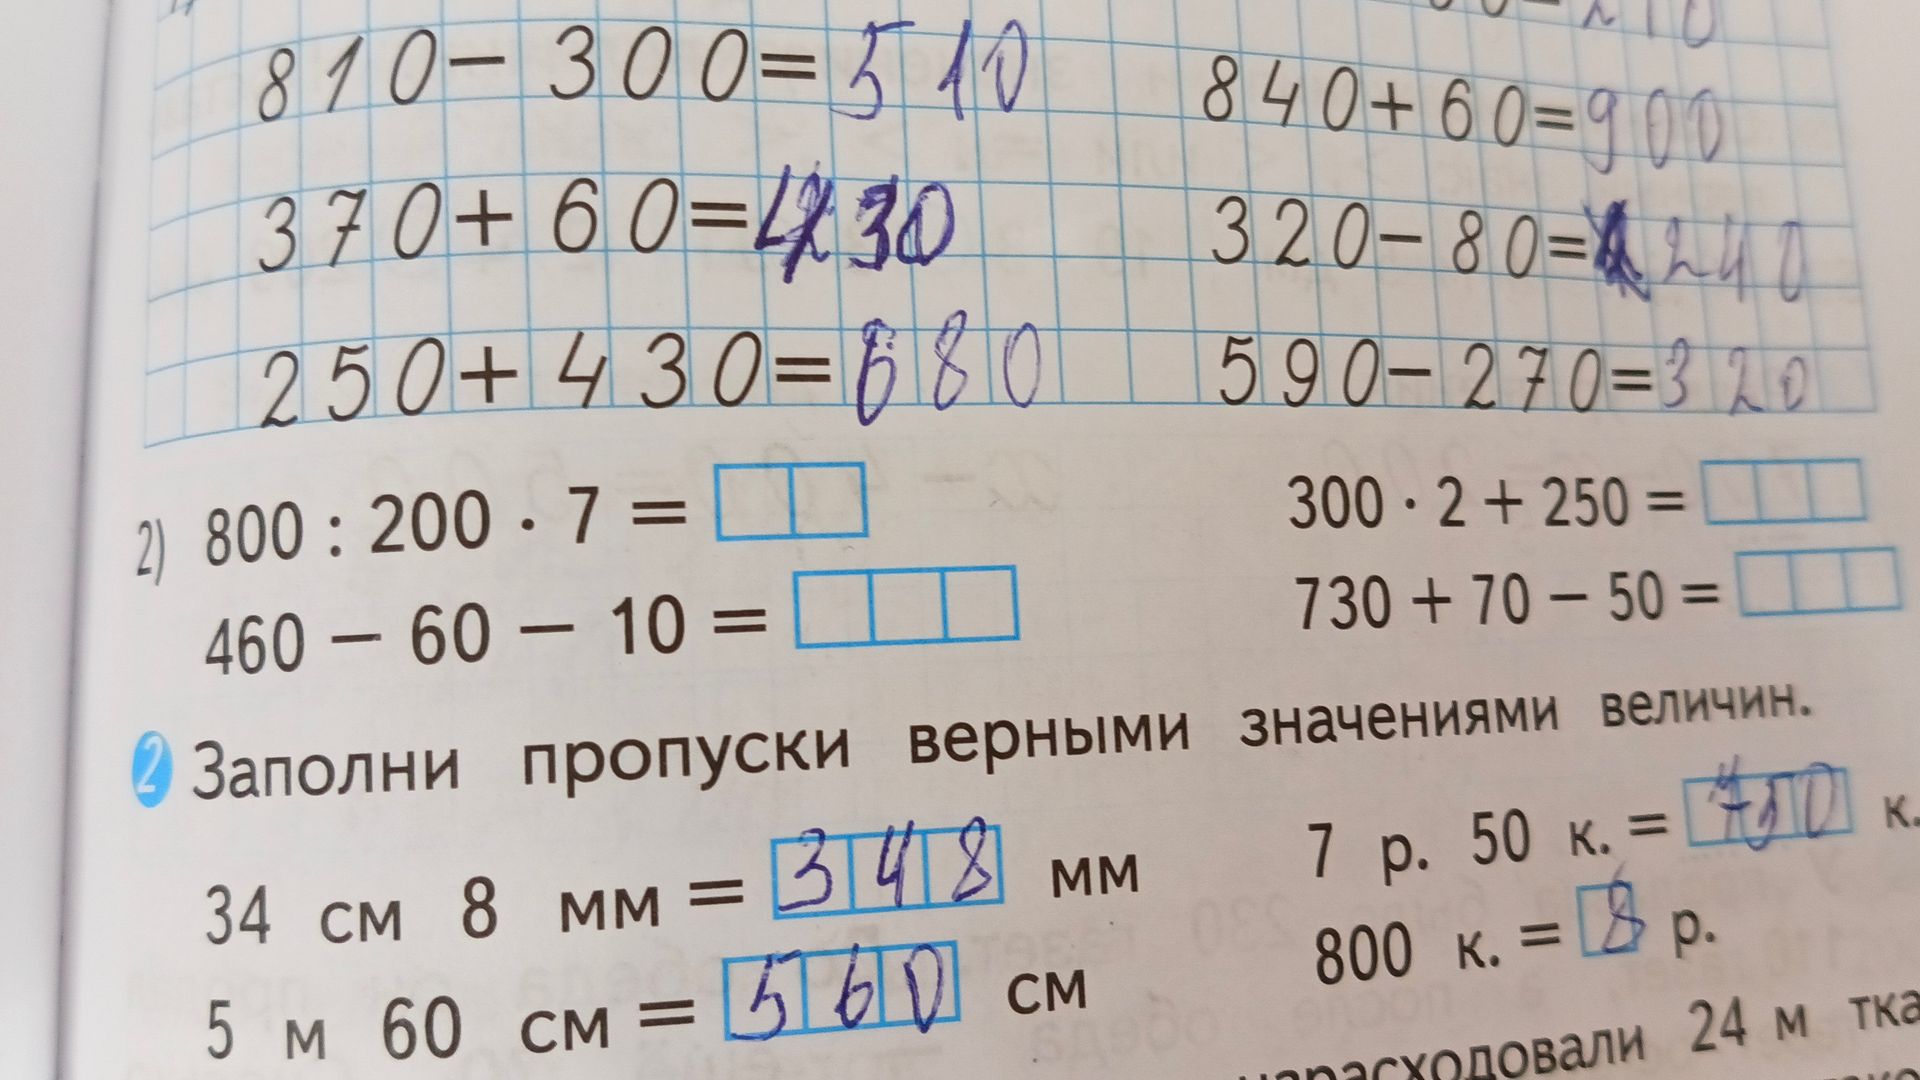 810 − 300 = 510
840 + 60 = 900
370 + 60 = 430
320 − 80 = 240
250 + 430 = 680
590 − 270 = 320
2) 800 : 200 · 7 =
300 · 2 + 250 =
460 − 60 − 10 =
730 + 70 − 50 =
2 Заполни пропуски верными значениями величин.
34 см 8 мм = 348 мм
7 р. 50 к. = 750 к.
5 м 60 см = 560 см
800 к. = 8 р.
24 м